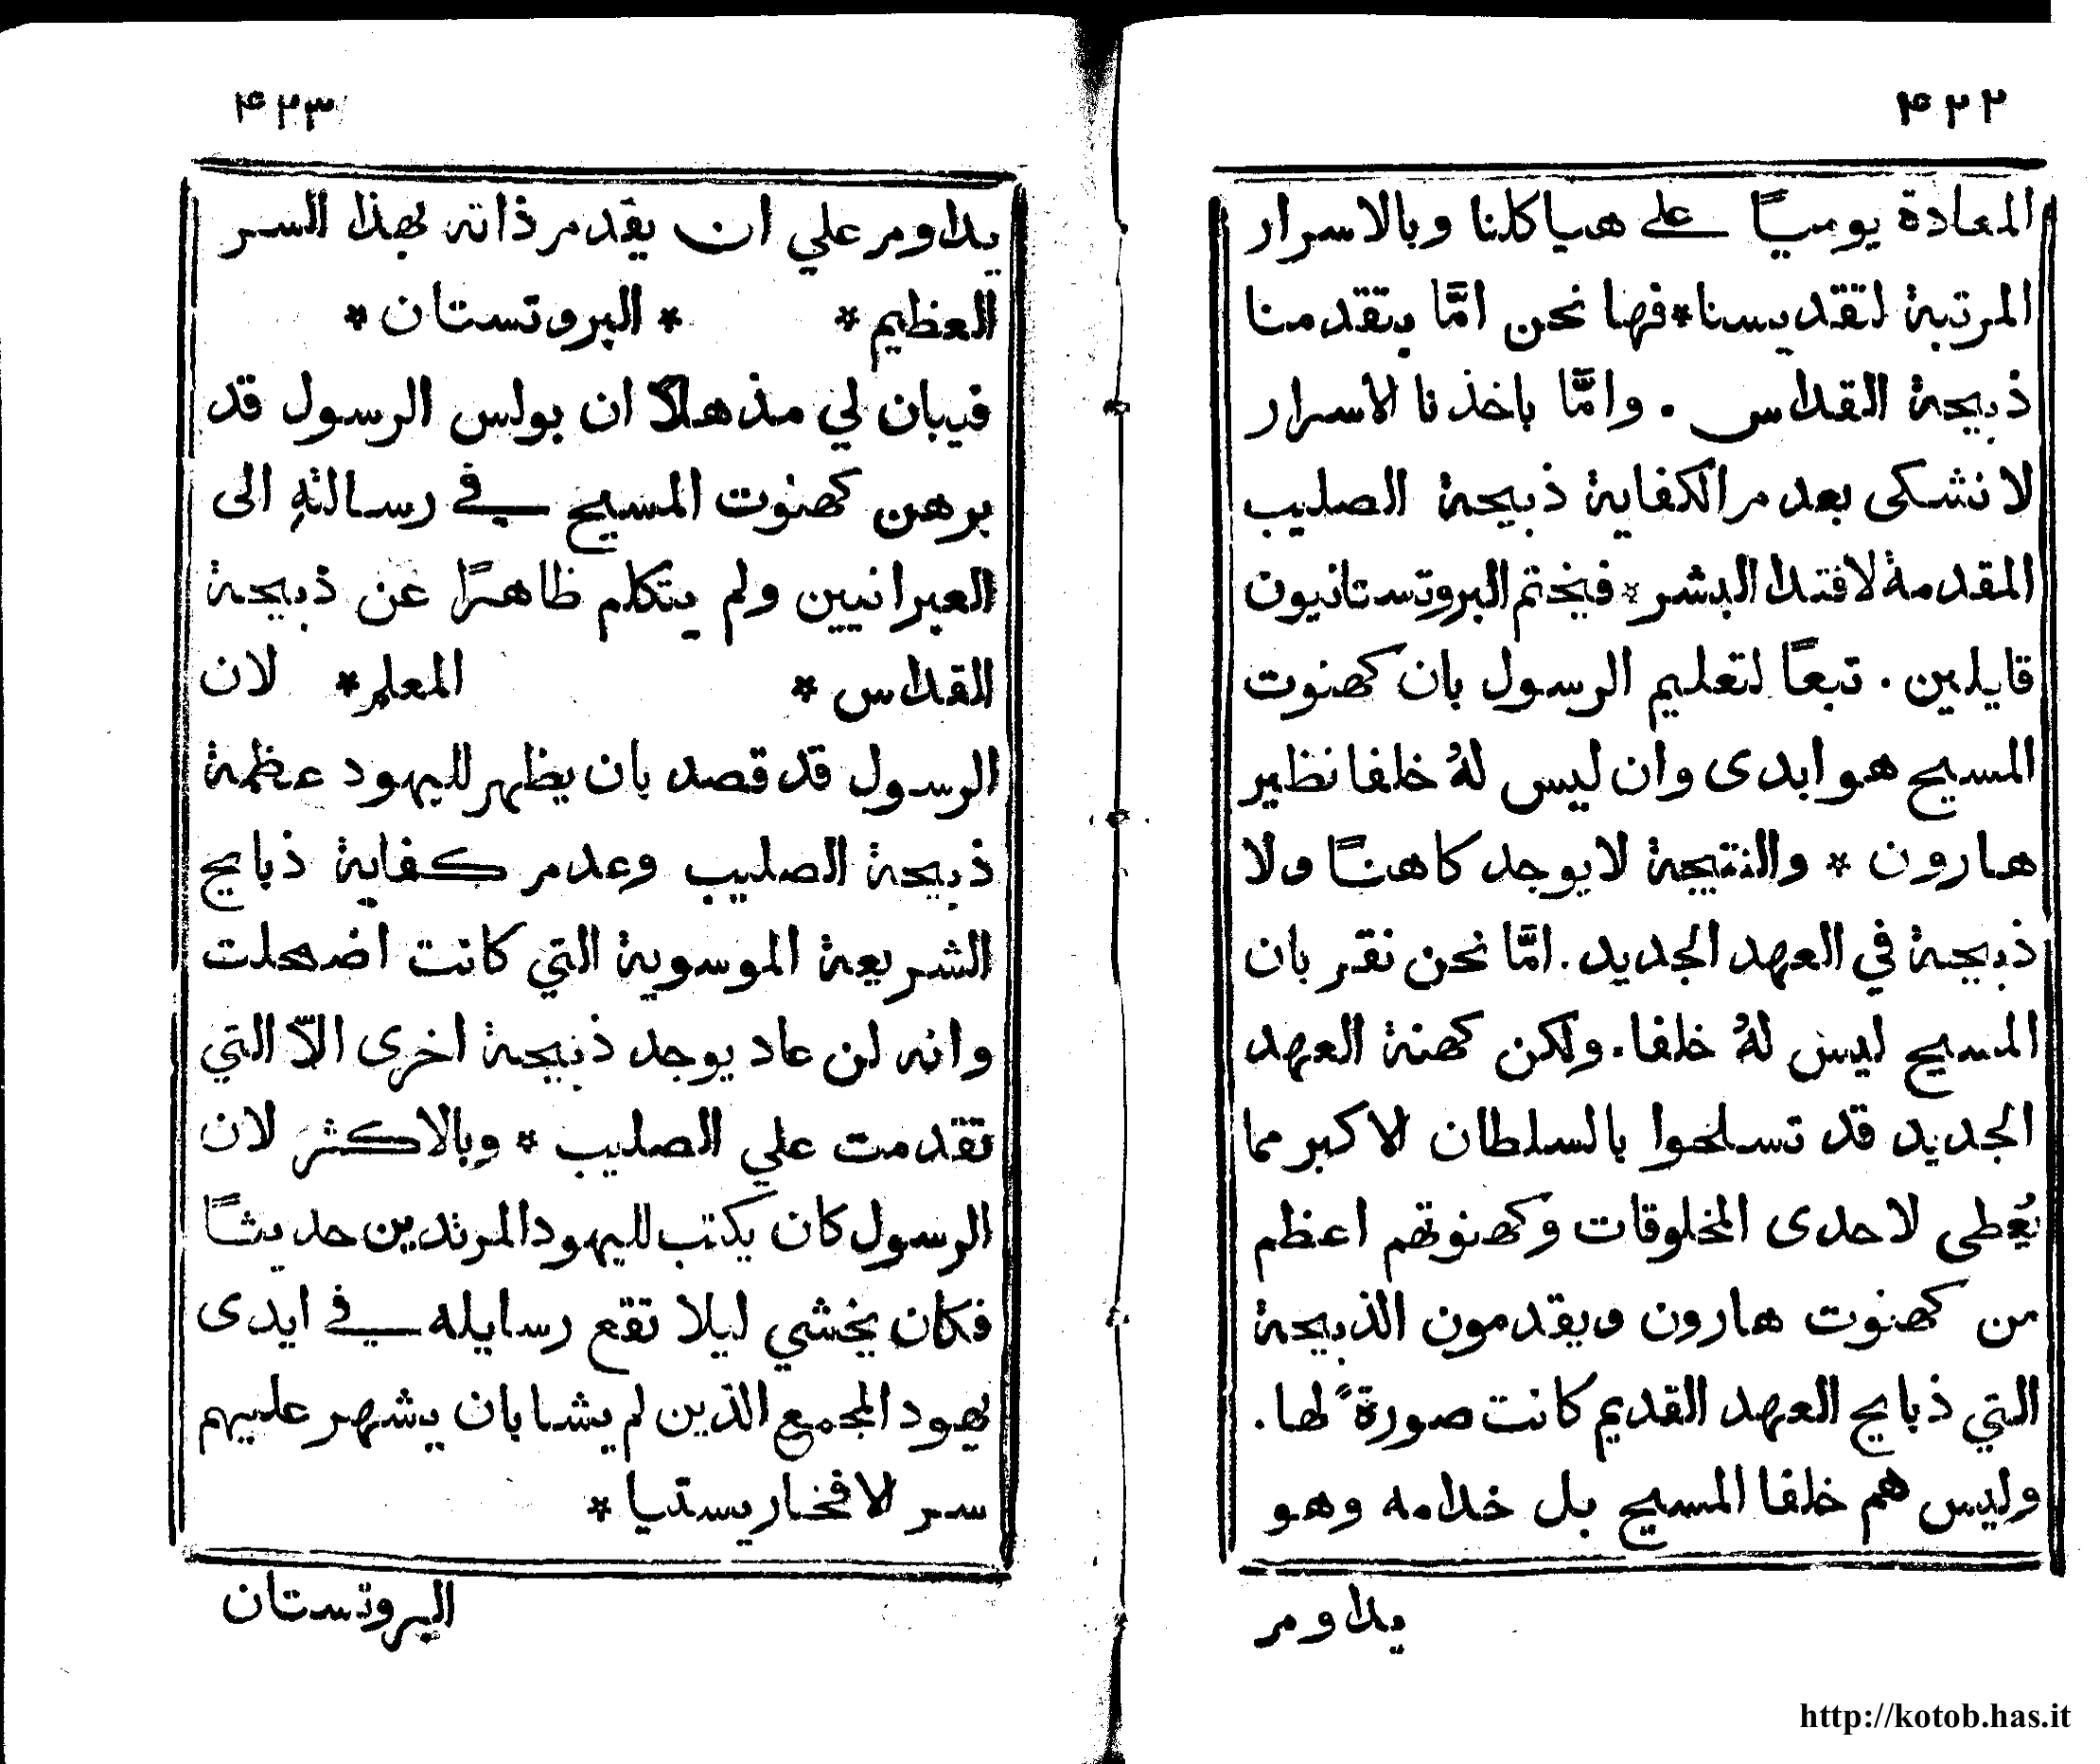 ۴۲۲
المعادة يوميًا على هياكلنا وبالاسرار
المرتبة لتقديسنا * فها نحن امَّا بتقدمنا
ذبيحة القداس . وامَّا باخذنا الاسرار
لا نشكى بعدم الكفاية ذبيحة الصليب
المقدمة لافتدا البشر * فيختم البروتستانيون
قايلين . تبعًا لتعليم الرسول بان كهنوت
المسيح هو ابدى وان ليس لهُ خلفا نظير
هارون * والنتيجة لا يوجد كاهنًا ولا
ذبيحة في العهد الجديد . امَّا نحن نقر بان
المسيح ليس لهُ خلفا . ولكن كهنة العهد
الجديد قد تسلحوا بالسلطان الاكبر مما
يُعطى لاحدى المخلوقات وكهنوتهم اعظم
من كهنوت هارون ويقدمون الذبيحة
التي ذبايح العهد القديم كانت صورةً لها .
وليس هم خلفا المسيح بل خدامه وهو
يداوم
۴۲۳
يداوم علي ان يقدم ذاته بهذا السر
العظيم * * البروتستان *
فيبان لي مذهلاً ان بولس الرسول قد
برهن كهنوت المسيح في رسالتهِ الى
العبرانيين ولم يتكلم ظاهرًا عن ذبيحة
القداس * المعلم * لان
الرسول قد قصد بان يظهر لليهود عظمة
ذبيحة الصليب وعدم كفاية ذبايح
الشريعة الموسوية التي كانت اضمحلت
وانه لن عاد يوجد ذبيحة اخرى الاّ التي
تقدمت علي الصليب * وبالاكثر لان
الرسول كان يكتب لليهود المرتدين حديثًا
فكان يخشي ليلا تقع رسايله في ايدى
يهود المجمع الذين لم يشا بان يشهر عليهم
سر الافخاريستيا *
البروتستان
http://kotob.has.it